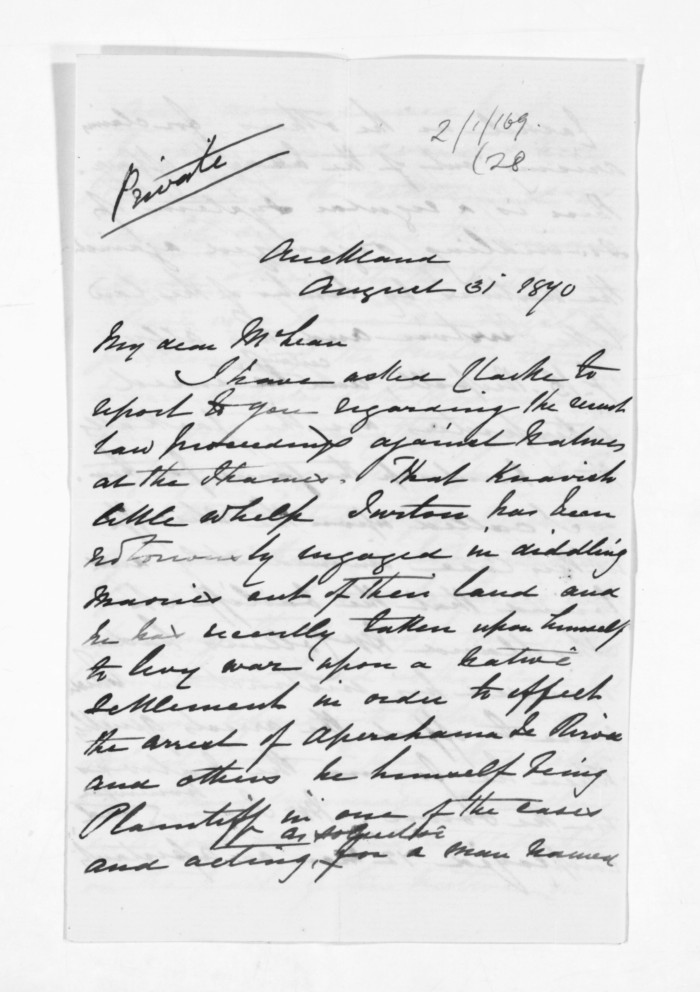 Private
2/1/169.
(28
Auckland
August 31 1870
My dear McLean
I have asked Clarke to
report to you regarding the recent
law proceedings against Natives
at the Thames. That Knavish
little whelp has been
notoriously engaged in diddling
Maories out of their land and
he has recently taken upon himself
to levy war upon a Native
settlement in order to effect
the arrest of Aperahama Te
and others he himself being
Plaintiff in one of the cases
as solicitor
and acting, for a man named